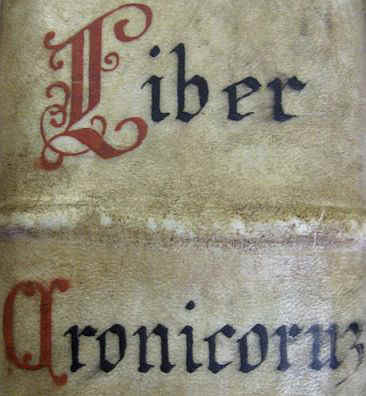 Liber
Cronicoruz